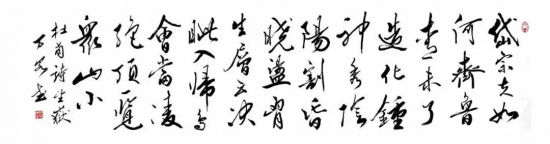 岱宗夫如
何齊魯
青未了
造化鍾
神秀陰
陽割昏
曉盪胸
生層雲决
眦入歸鳥
會當凌
絶頂一覽
衆山小
杜甫詩望嶽